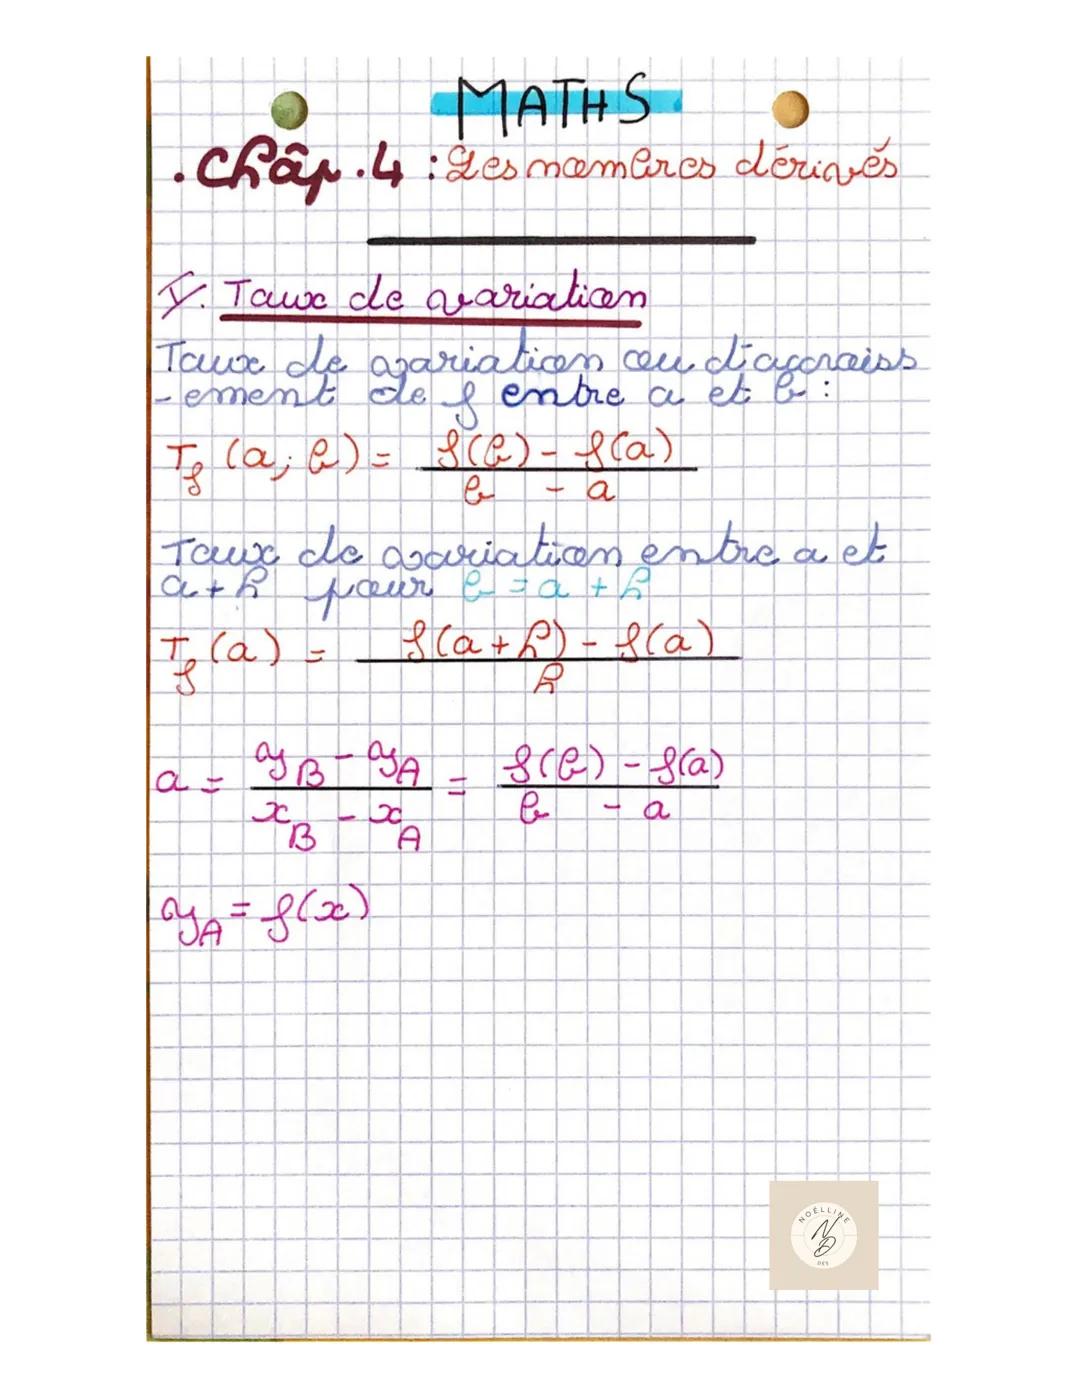 MATHS
. Châp. 4 : Les nombres dérivés
I. Taux de variation
Taux de variation ou d'accroiss
-ement de f entre a et b :
T_f (a; b) = f(b) - f(a)
b - a
Taux de variation entre a et
a + h pour b = a + h
T_f (a) = f(a + h) - f(a)
h
a = y_B - y_A = f(b) - f(a)
x_B - x_A b - a
y_A = f(x)
NOËLLINE
ND
DES